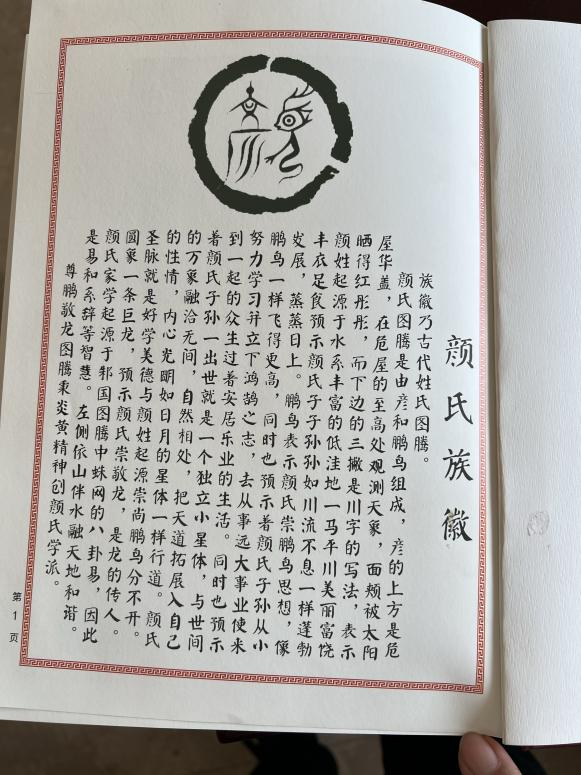 颜氏族徽
族徽乃古代姓氏图腾。
颜氏图腾是由彦和鹏鸟组成，彦的上方是危
屋华盖，在危屋的至高处观测天象，面颊被太阳
晒得红彤彤，而下边的三撇是川字的写法，表示
颜姓起源于水系丰富的低洼地一马平川美丽富饶
丰衣足食预示颜氏子子孙孙如川流不息一样蓬勃
发展，蒸蒸日上。鹏鸟表示颜氏崇鹏鸟思想，像
鹏鸟一样飞得更高，同时也预示着颜氏子孙从小
努力学习并立下鸿鹄之志，去从事远大事业使来
到一起的众生过着安居乐业的生活。同时也预示
着颜氏子孙一出世就是一个独立小星体，与世间
的万象融洽无间，自然相处，把天道拓展入自己
的性情，内心光明如日月的星体一样行道。颜氏
圣脉就是好学美德与颜姓起源崇尚鹏鸟分不开。
圆象一条巨龙，预示颜氏崇敬龙，是龙的传人。
颜氏家学起源于邾国图腾中蛛网的八卦易，因此
是易和系辞等智慧。左侧依山伴水融天地和谐。
尊鹏敬龙图腾秉炎黄精神创颜氏学派。
第1页